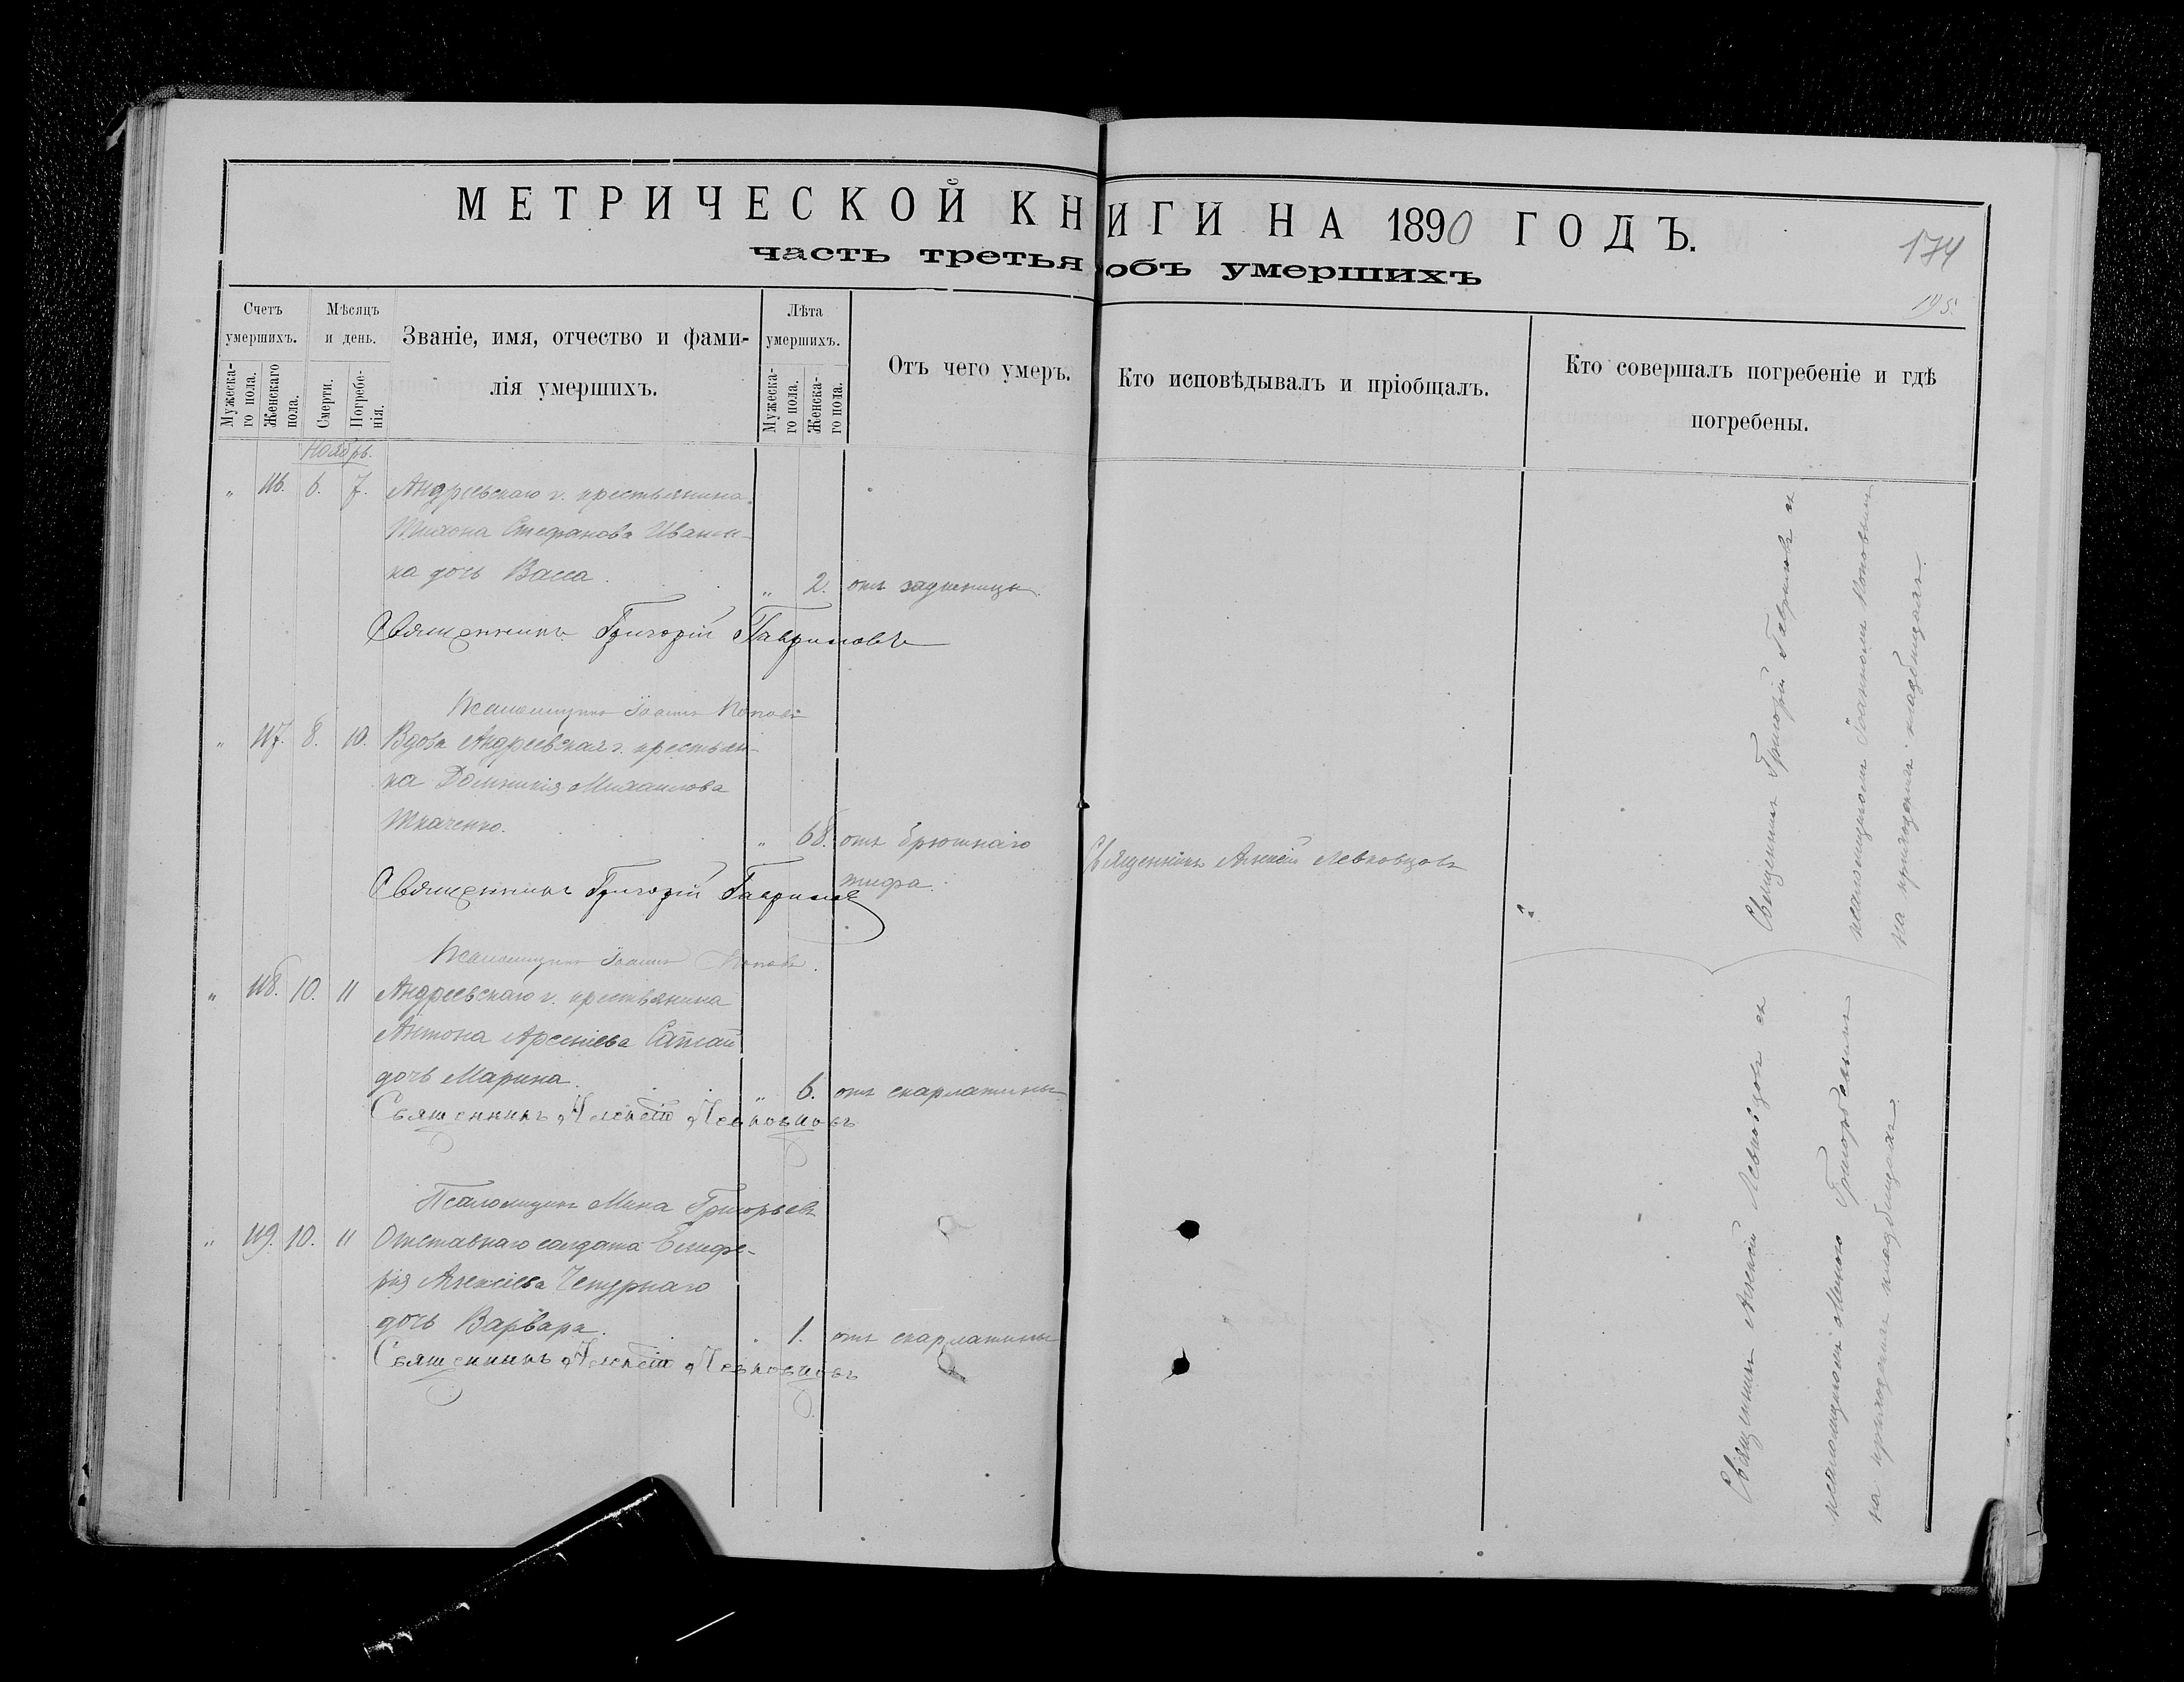 МЕТРИЧЕСКОЙ КНИГИ НА 1890 ГОДЪ.
174
часть третья объ умершихъ
195.
Счетъ умершихъ.
Мужеска-го пола.
Женскаго пола.
Мѣсяцъ и день.
Смерти.
Погребе-нія.
Званіе, имя, отчество и фами-
лія умершихъ.
Лѣта умершихъ.
Мужеска-го пола.
Женска-го пола.
Отъ чего умеръ.
Кто исповѣдывалъ и пріобщалъ.
Кто совершалъ погребеніе и гдѣ
погребены.
Ноябрь.
„ 116. 6. 7. Андреевскаго г. крестьянина
Тихона Стефанова Иванен-
ка дочь Васса. „ 2. отъ задушницы.
Священникъ Григорій Гавриловъ
Псаломщикъ Іоаннъ Поповъ
„ 117. 8. 10. Вдова Андреевская г. крестьян-
ка Домникія Михаилова
Ткаченко. „ 68. отъ брюшнаго
тифа.
Священникъ Алексій Левковцовъ
Священникъ Григорій Гавриловъ
Псаломщикъ Іоаннъ Поповъ.
„ 118. 10. 11 Андреевскаго г. крестьянина
Антона Арсеніева
дочь Марина. „ 6. отъ скарлатины
Священникъ Алексій Левковцовъ
Псаломщикъ Мина Григорьевъ
„ 119. 10. 11 Отставнаго солдата Елифе-
рія Алексіева Чепурнаго
дочь Варвара. „ 1. отъ скарлатины
Священникъ Алексій Левковцовъ
Священникъ Григорій Гавриловъ съ
псаломщикомъ Іоанномъ Поповымъ
на приходскомъ кладбищѣ.
Священникъ Алексій Левковцовъ съ
псаломщикомъ Миною Григорьевымъ
на приходскомъ кладбищѣ.